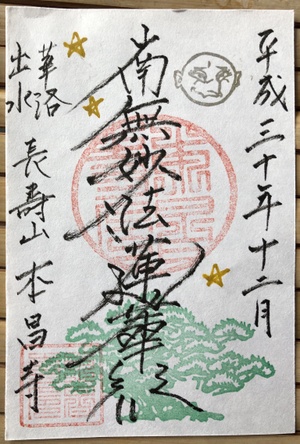 平成三十年十二月
南無妙法蓮華経
華洛
出水
長壽山本昌寺